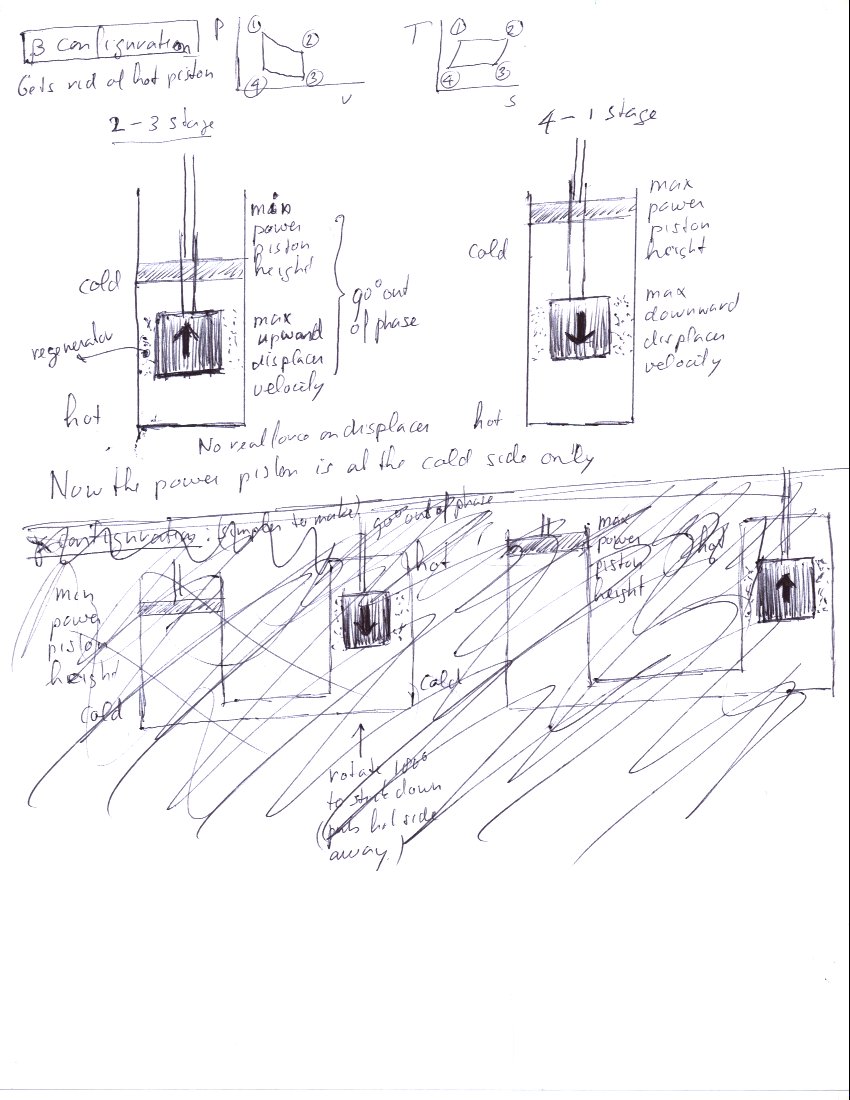 β Configuration
Gets rid of hot piston
P
①
②
③
④
V
T
①
②
③
④
S
2-3 stage
4-1 stage
min
power
piston
height
cold
max
upward
displacer
velocity
90° out
of phase
regenerator
hot
max
power
piston
height
cold
max
downward
displacer
velocity
hot
No real force on displacer
Now the power piston is at the cold side only
Configuration: (simpler to make)
90° out of phase
min
power
piston
height
cold
hot
cold
max
power
piston
height
hot
rotate
to shut down
(puts hot side
away)